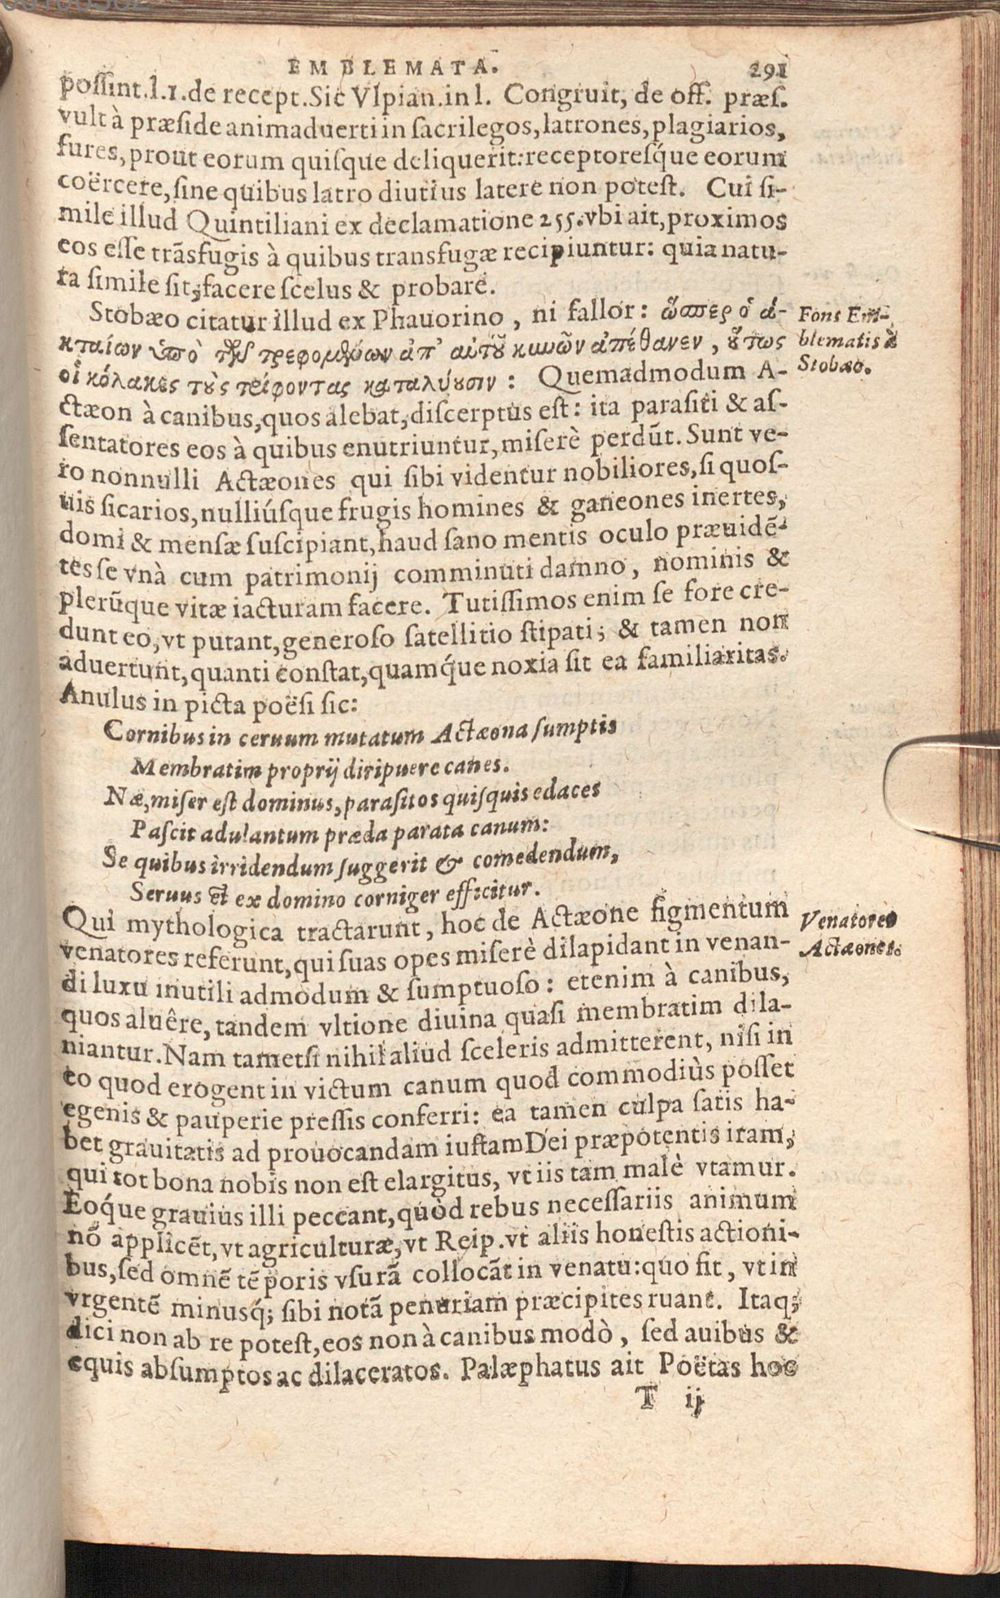 EMBLEMATA. 291
poſſint.l.1.de recept.Sic Vlpian.in l. Congruit, de off. præſ.
vult à præſide animaduerti in ſacrilegos,latrones,plagiarios,
fures,prout eorum quiſque deliquerit:receptoreſq́ue eorum
coërcere,ſine quibus latro diutius latere non poteſt. Cui ſi-
mile illud Quintiliani ex declamatione 255.vbi ait,proximos
eos eſſe trãsfugis à quibus transfugæ recipiuntur: quia natu-
ra ſimile ſit,facere ſcelus & probare.
Stobæo citatur illud ex Phauorino , ni fallor: ὥσπερ ὁ ἀ-
κταίων ὑπὸ τῶν τρεφομένων ἀπ' αὐτοῦ κυνῶν ἀπέθανεν , οὕτως
οἱ κόλακες τοὺς τρέφοντας καταλύουσιν : Quemadmodum A-
ctæon à canibus,quos alebat,diſcerptus eſt: ita paraſiti & aſ-
ſentatores eos à quibus enutriuntur,miſerè perdũt. Sunt ve-
ro nonnulli Actæones qui ſibi videntur nobiliores,ſi quoſ-
uis ſicarios,nulliúſque frugis homines & ganeones inertes,
domi & menſæ ſuſcipiant,haud ſano mentis oculo præuidẽ-
tes ſe vnà cum patrimonij comminuti damno, nominis &
plerũque vitæ iacturam facere. Tutiſſimos enim ſe fore cre-
dunt eo,vt putant,generoſo ſatellitio ſtipati; & tamen non
aduertunt,quanti conſtat,quamq́ue noxia ſit ea familiaritas.
Anulus in picta poëſi ſic:
Cornibus in ceruum mutatum Actæona ſumptis
Membratim proprij diripuere canes.
Næ,miſer eſt dominus,paraſitos quiſquis edaces
Paſcit adulantum præda parata canum:
Se quibus irridendum ſuggerit & comedendum,
Seruus & ex domino corniger efficitur.
Qui mythologica tractarunt, hoc de Actæone figmentum
venatores referunt,qui ſuas opes miſerè dilapidant in venan-
di luxu inutili admodum & ſumptuoſo: etenim à canibus,
quos aluêre,tandem vltione diuina quaſi membratim dila-
niantur.Nam tametſi nihil aliud ſceleris admitterent, niſi in
eo quod erogent in victum canum quod commodiùs poſſet
egenis & pauperie preſſis conferri: ea tamen culpa ſatis ha-
bet grauitatis ad prouocandam iuſtam Dei præpotentis iram,
qui tot bona nobis non eſt elargitus, vt iis tam malè vtamur.
Eoq́ue grauius illi peccant,quòd rebus neceſſariis animum
nõ applicẽt,vt agriculturæ,vt Reip.vt aliis honeſtis actioni-
bus,ſed omnẽ tẽporis vſurã collocãt in venatu:quo fit, vt in
vrgentẽ minusq́; ſibi notã penuriam præcipites ruant. Itaq;
dici non ab re poteſt,eos non à canibus modò, ſed auibus &
equis abſumptos ac dilaceratos. Palæphatus ait Poëtas hoc
T ij
Fons Em-
blematis è
Stobæo.
Venatores
Actæones.